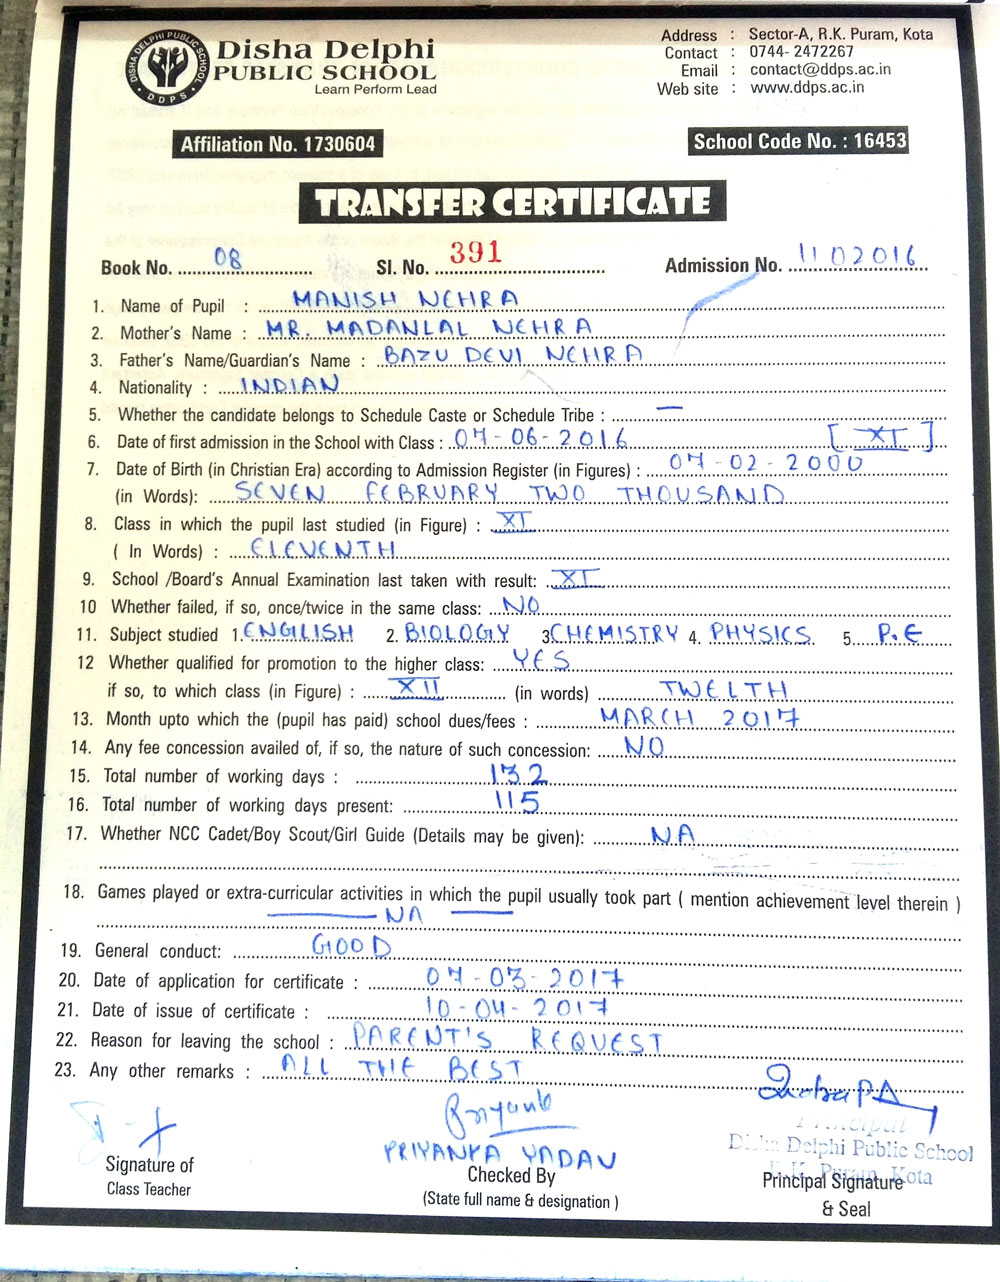 DISHA DELPHI PUBLIC SCHOOL
DDPS
Disha Delphi
PUBLIC SCHOOL
Learn Perform Lead
Address : Sector-A, R.K. Puram, Kota
Contact : 0744- 2472267
Email : contact@ddps.ac.in
Web site : www.ddps.ac.in
Affiliation No. 1730604
School Code No. : 16453
TRANSFER CERTIFICATE
Book No. 08 Sl. No. 391 Admission No. 11 02016
1. Name of Pupil : MANISH NEHRA
2. Mother's Name : MR. MADANLAL NEHRA
3. Father's Name/Guardian's Name : BAZU DEVI NEHRA
4. Nationality : INDIAN
5. Whether the candidate belongs to Schedule Caste or Schedule Tribe : —
6. Date of first admission in the School with Class : 07-06-2016 [XI]
7. Date of Birth (in Christian Era) according to Admission Register (in Figures) : 07-02-2000
(in Words): SEVEN FEBRUARY TWO THOUSAND
8. Class in which the pupil last studied (in Figure) : XI
( In Words) : ELEVENTH
9. School /Board's Annual Examination last taken with result: XI
10 Whether failed, if so, once/twice in the same class: NO
11. Subject studied 1. ENGILISH 2. BIOLOGY 3 CHEMISTRY 4. PHYSICS 5. P.E
12 Whether qualified for promotion to the higher class: YES
if so, to which class (in Figure) : XII (in words) TWELTH
13. Month upto which the (pupil has paid) school dues/fees : MARCH 2017
14. Any fee concession availed of, if so, the nature of such concession: NO
15. Total number of working days : 132
16. Total number of working days present: 115
17. Whether NCC Cadet/Boy Scout/Girl Guide (Details may be given): NA
18. Games played or extra-curricular activities in which the pupil usually took part ( mention achievement level therein )
NA
19. General conduct: GOOD
20. Date of application for certificate : 07-03-2017
21. Date of issue of certificate : 10-04-2017
22. Reason for leaving the school : PARENT'S REQUEST
23. Any other remarks : ALL THE BEST
Priyanka
PRIYANKA YADAV
Principal
Disha Delphi Public School
R.K. Puram, Kota
Signature of
Class Teacher
Checked By
(State full name & designation )
Principal Signature
& Seal